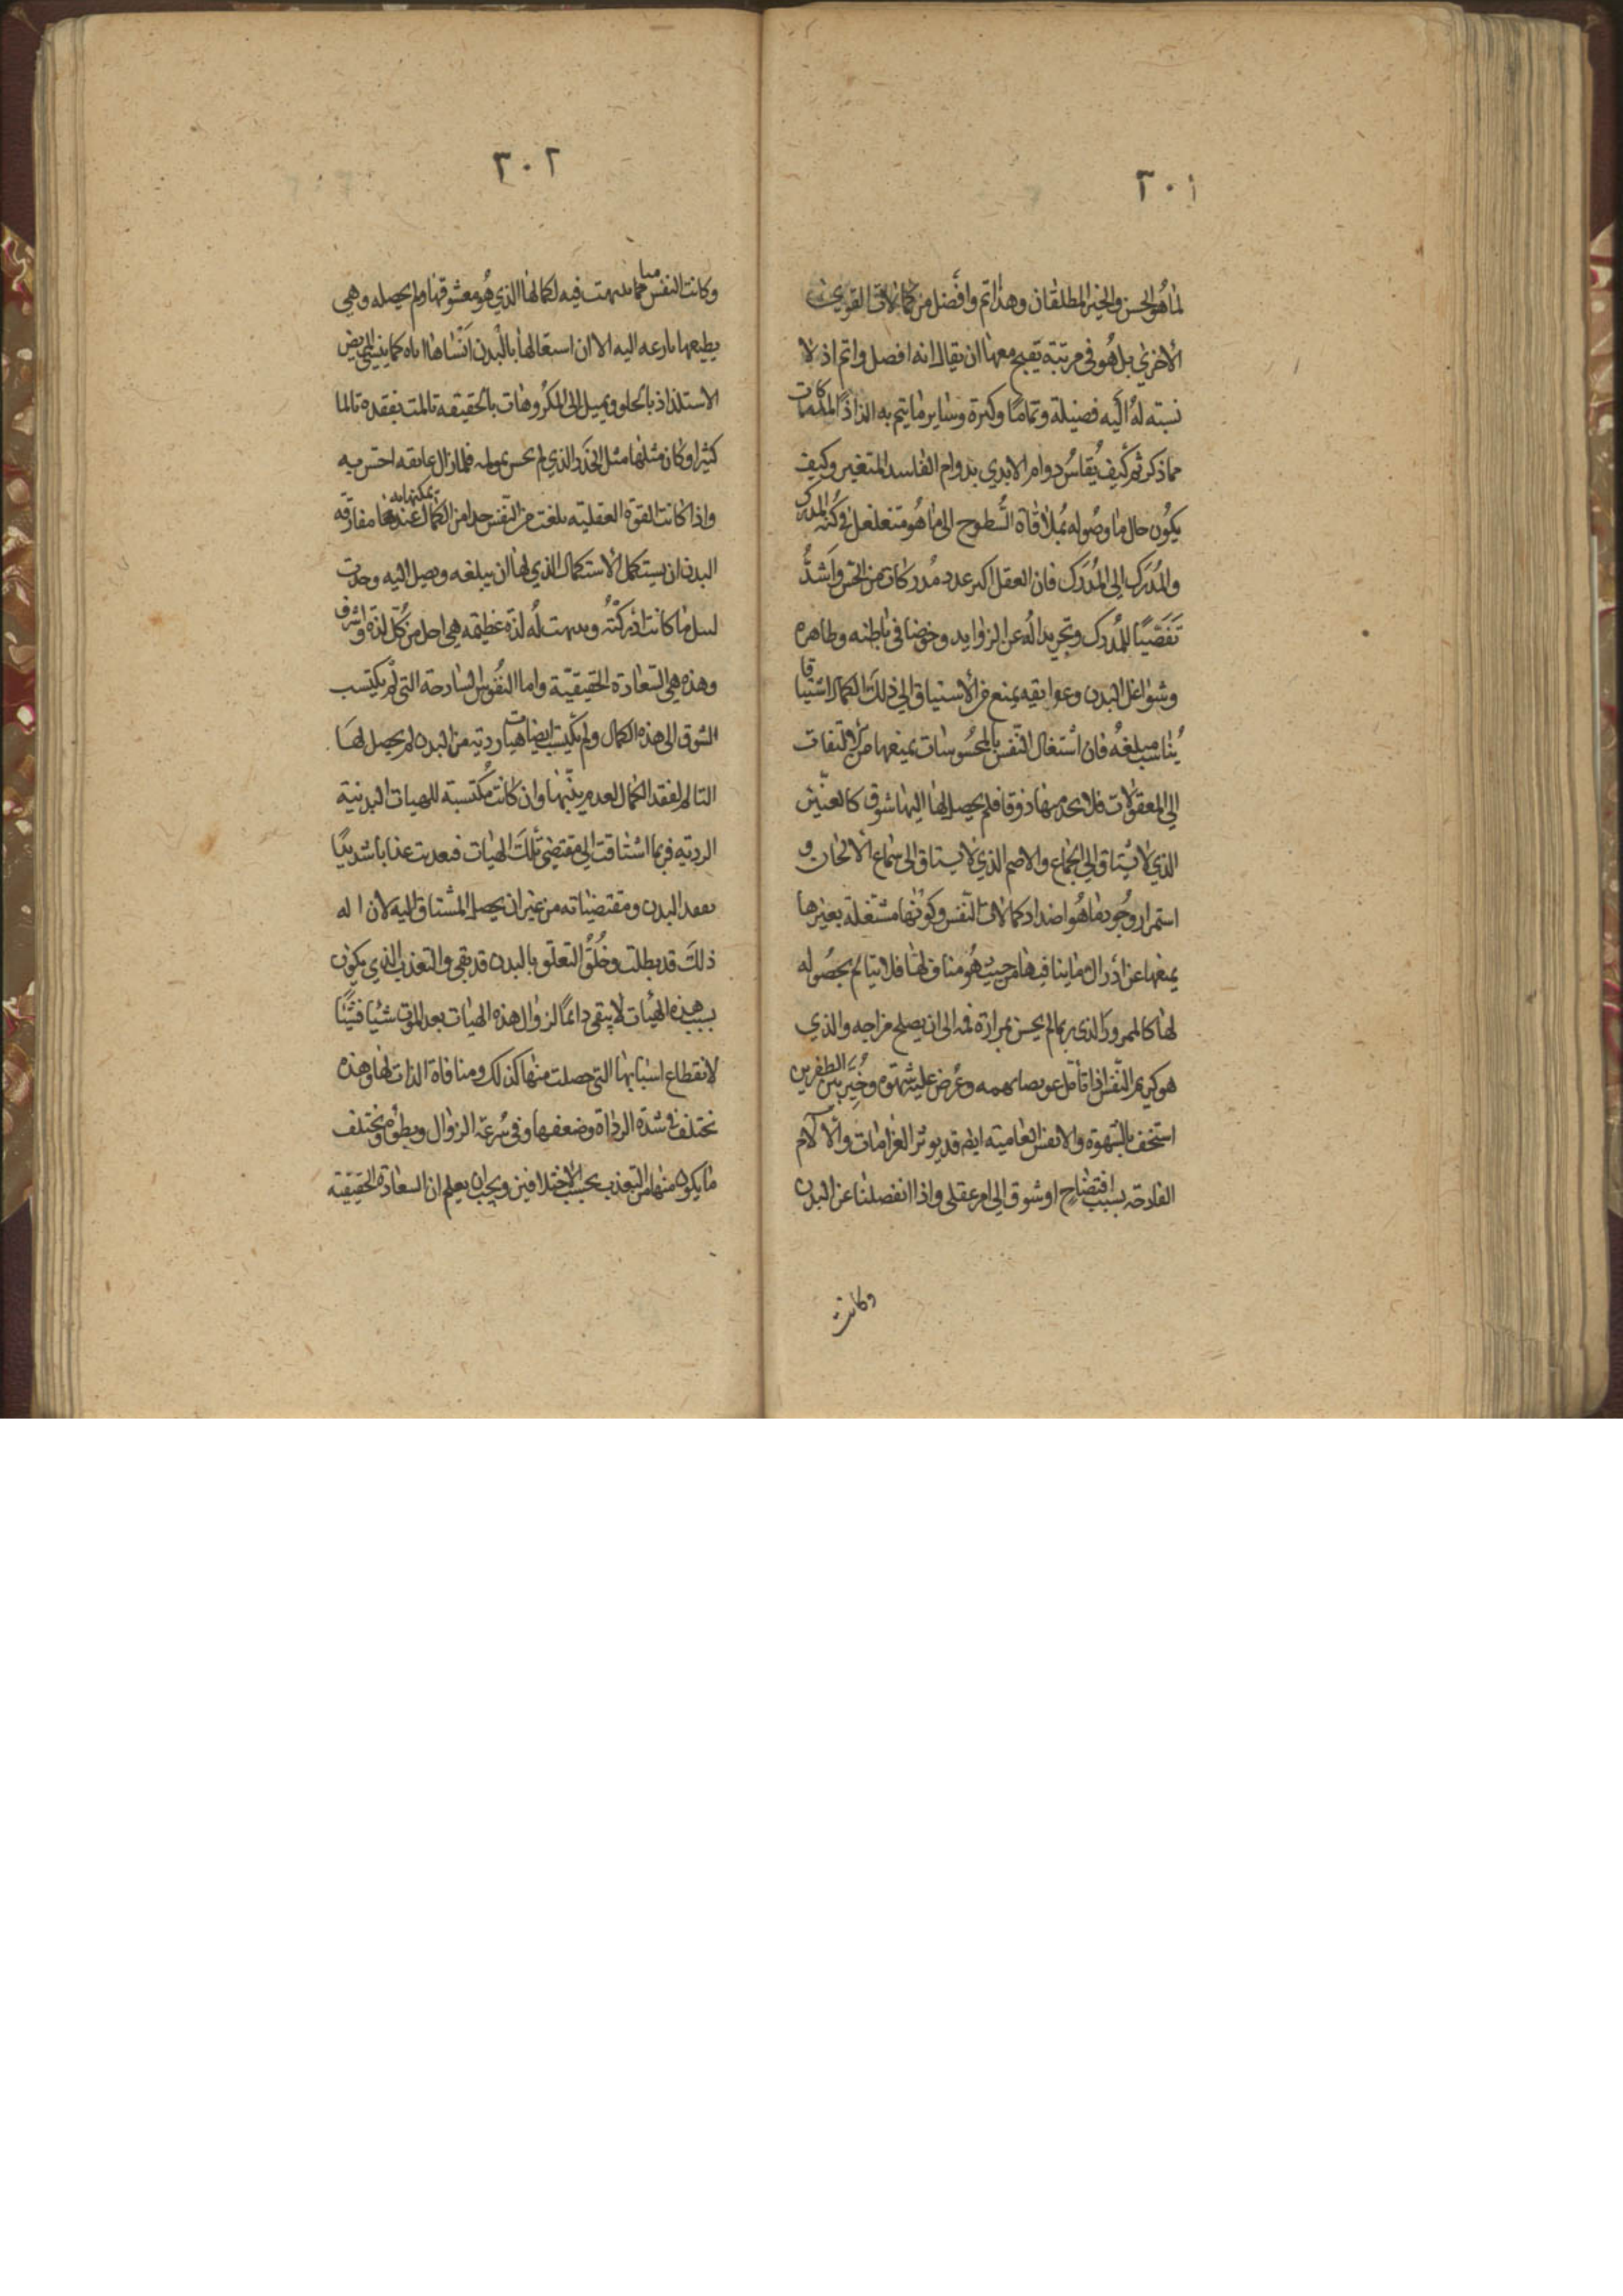 ٣٠١
لما هو الحسن والخير المطلقان وهذا اتم وافضل من كمالات القوى
الأخرى بل هو في مرتبة يقبح معها ان يقال انه افضل واتم اذ لا
نسبته له اليه فضيلة وتماما وكثرة وساير ما يتم به الذاذ المدركات
مما ذكر ثم كيف يُقاسُ دوام الابدي بدوام الفاسد المتغير وكيف
يكون حال ما وصوله بملاقاة السُّطوح الى ما هو متغلغل في كُنه المدرك
والمُدرِك الى المُدرَك فان العقل اكثر عدد مُدركات من الحس واَشدُّ
تَقَصّيًا للمُدرك وتجريدا لُه عن الزوايد وخوضا في باطنه وظاهره
وشواغل البدن وعوايقه يمنع من الأشتياق الى ذلك الكمال اشتياقا
يُناسب مبلغهُ فان اشتغال النفس بالمحسُوسات يمنعها من الالتفات
الي المعقولات فلا يجد منها ذوقا فلم يحصل لها اليها شوق كالعنّين
الذي لا يشتاق الي الجماع والاصم الذي لا يشتاق الى سماع الألحان و
استمرار وجُود ما هُو اضداد كمالات النفس وكونها مشتغلة بغيرها
يمنعها عن أدراك ما ينافيها من حيث هُو مناف لها فلا يتالم بحصُوله
لها كالممرور الذي ربما لم يحس بمرارة فمه الى ان يصلح مزاجه والذي
هو كريم النفس اذا تامل عويصا يهمه وعُرض عليه شهوة وخُيِّر بين الظفرين
استخف بالشهوة والانفس العامية ايضا قد يوثر الغرامات والألام
الفادحة بسبب افتضاح او شوق الي امر عقلي واذا انفصلنا عن البدن
وكانت
٣٠٢
وكانت النفس منا مما تنبهت فيه لكمالها الذي هُو معشوقها ولم يحصله وهي
بطبعها نازعه اليه الا ان اشتغالها بالبدن اَنساها اياه كما ينسي المريض
الاستلذاذ بالحلو ويميل الى المكروهات بالحقيقه تالمت بفقده تالما
كثيرا وكان مثلها مثل الخَدَر الذي لم يحس فلما زال عايقه احس به
واذا كانت القوة العقليته بلغت من النفس حدا من الكمال يمكنها به عند مفارقه
البدن ان يستكمل الأستكمال الذي لها ان يبلغه وصل اليه وجدت
ما كانت ادركته ومهت لُه لذة عظيمه هي اجل من كُل لذة واشرف
وهذه هي السعادة الحقيقيّة واما النفُوس الساذجة التي لم يكتسب
الشوق الى هذه الكمال ولم يكتسب ايضا هيات رديه من البدن لم يحصل لها
التالم لفقد الكمال لعدم تنبّهها وان كانت مُكتسبة للهيات البدنية
الرديه فربما اشتاقت الي مقتضى تلك الهيات فبعدت عذابا شديدًا
بفقد البدن ومقتضياته من غير ان يحصل المشتاق اليه لان اله
ذلك قد بطلت وخُلُق التعلق بالبدن قد بقي والتعذب الذي يكون
بسبب هذه الهيئات لا يبقى دائمًا لزوال هذه الهيات بعد الموت شيا فشيًا
لانقطاع اسبابها التي حصلت منها كذلك ومنافاة الذات لها وهذه
تختلف في شدة الرداة وضعفها وفي سُرعه الزوال وبطؤه ويختلف
ما يكون منها من التعذب بحسب الاختلافين ويجب ان يعلم ان السعادة الحقيقية